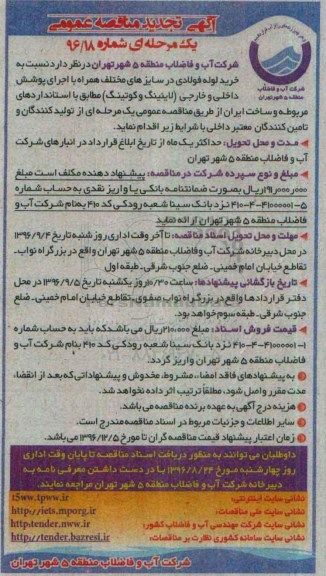 آگهی تجدید مناقصه عمومی
یک مرحله ای شماره ۹۶/۱۸
شرکت آب و فاضلاب
منطقه ۵ شهر تهران
شرکت آب و فاضلاب منطقه ۵ شهر تهران در نظر دارد نسبت به
خرید لوله فولادی در سایز های مختلف همراه با اجرای پوشش
داخلی و خارجی (لاینینگ و کوتینگ) مطابق با استانداردهای
مربوطه و ساخت ایران از طریق مناقصه عمومی یک مرحله ای از تولید کنندگان و
تامین کنندگان معتبر داخلی با شرایط زیر اقدام نماید.
مدت و محل تحویل: حداکثر یک ماه از تاریخ ابلاغ قرارداد در انبار های شرکت
آب و فاضلاب منطقه ۵ شهر تهران
مبلغ و نوع سپرده شرکت در مناقصه: پیشنهاد دهنده مکلف است مبلغ
ریال بصورت ضمانتنامه بانکی یا واریز نقدی به حساب شماره
۵-۴۱۰۰۰۰۰۱-۴-۴۱۰ نزد بانک سینا شعبه رودکی کد ۴۱۰ بنام شرکت آب و
فاضلاب منطقه ۵ شهر تهران ارائه نماید
مهلت و محل تحویل اسناد مناقصه: تا آخر وقت اداری روز شنبه تاریخ ۱۳۹۶/۹/۴
در محل دبیرخانه شرکت آب و فاضلاب منطقه ۵ شهر تهران واقع در بزرگراه نواب،
تقاطع خیابان امام خمینی، ضلع جنوب شرقی، طبقه اول
تاریخ بازگشائی پیشنهادها: ساعت ۱۰/۳۰ روز یکشنبه تاریخ ۱۳۹۶/۹/۵ در محل
دفتر قراردادها واقع در بزرگراه نواب صفوی، تقاطع خیابان امام خمینی، ضلع
جنوب شرقی، طبقه سوم خواهد بود.
قیمت فروش اسناد: مبلغ ۲۱۰،۰۰۰ ریال می باشد که باید به حساب شماره
۱-۴۱۰۰۰۰۰۱-۴-۴۱۰ نزد بانک سینا شعبه رودکی کد ۴۱۰ بنام شرکت آب و
فاضلاب منطقه ۵ شهر تهران واریز گردد.
به پیشنهادهای فاقد امضاء، مشروط، مخدوش و پیشنهاداتی که بعد از انقضاء
مدت مقرر واصل شود، مطلقاً ترتیب اثر داده نخواهد شد.
هزینه درج آگهی به عهده برنده مناقصه می باشد.
سایر اطلاعات و جزئیات مربوط در اسناد مناقصه مندرج است.
زمان اعتبار پیشنهاد قیمت مناقصه گران تا مورخ ۱۳۹۶/۱۲/۵ می باشد.
داوطلبان می توانند به منظور دریافت اسناد مناقصه تا پایان وقت اداری
روز چهارشنبه مورخ ۱۳۹۶/۸/۲۴ با در دست داشتن معرفی نامه به
دبیرخانه شرکت آب و فاضلاب منطقه ۵ شهر تهران مراجعه نمایند.
نشانی سایت اینترنتی: t5ww.tpww.ir
نشانی سایت ملی مناقصات: http://iets.mporg.ir
نشانی سایت شرکت مهندسی آب و فاضلاب کشور: http:tender.nww.ir
نشانی سایت سامانه کشوری نظارت بر مناقصات: http://tender.bazresi.ir
شرکت آب و فاضلاب منطقه ۵ شهر تهران